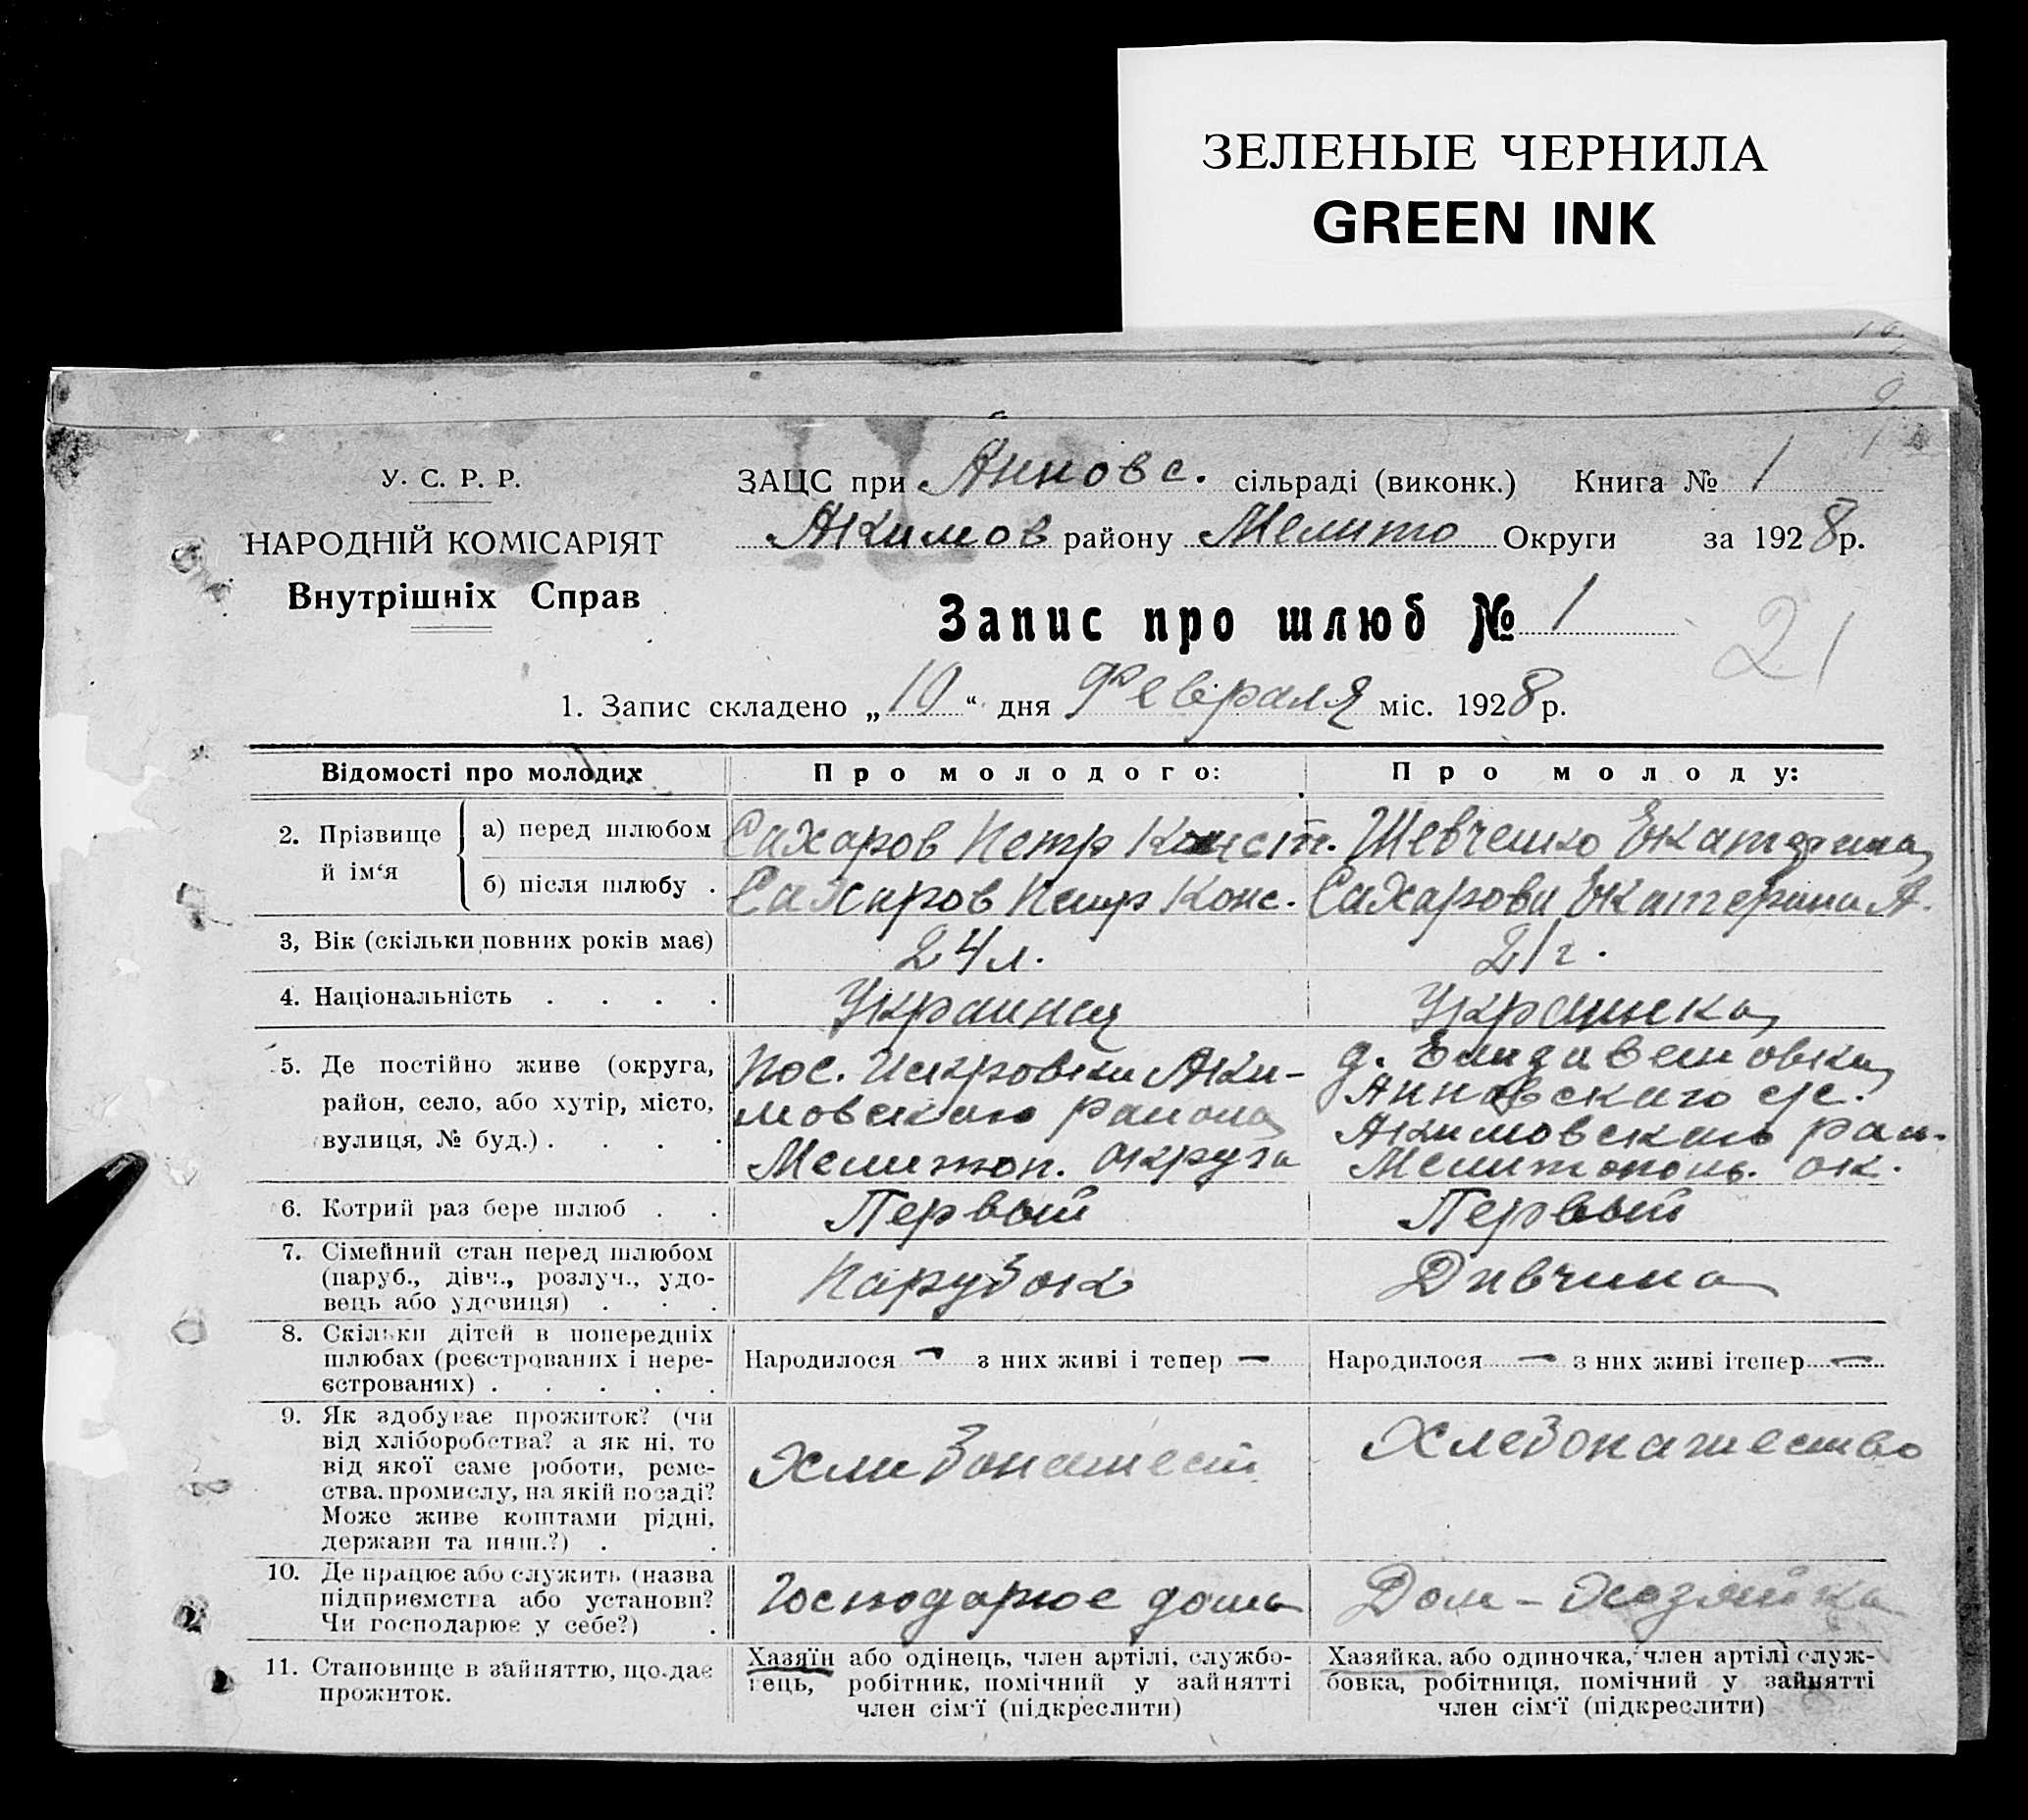 ЗЕЛЕНЫЕ ЧЕРНИЛА
GREEN INK
У. С. Р. Р.
НАРОДНІЙ КОМІСАРІЯТ
Внутрішніх Справ
ЗАЦС при Анновс. сільраді (виконк.) Книга № 1
Акимов району Мелито Округи за 1928 р.
Запис про шлюб № 1
21
1. Запис складено „10“ дня Февраля міс. 1928 р.
Відомості про молодих
Про молодого:
Про молоду:
2. Прізвище й ім‘я
а) перед шлюбом
Сахаров Петр Конст.
Шевченко Екатерина
б) після шлюбу .
Сахаров Петр Конс.
Сахарова Екатерина А.
3, Вік (скільки повних років має)
24 л.
21 г.
4. Національність . . . .
Украинец
Украинка
5. Де постійно живе (округа,
район, село, або хутір, місто,
вулиця, № буд.) . . . .
Пос. Аки-
мовского района
Мелитоп. округа
д. Елизаветовка
Анновского с/с.
Акимовского рай.
Мелитополь. ок.
6. Котрий раз бере шлюб . .
Первый
Первый
7. Сімейний стан перед шлюбом
(паруб., дівч., розлуч., удо-
вець або удовиця) . . .
Парубок
Дивчина
8. Скільки дітей в попередніх
шлюбах (реєстрованих і нере-
єстрованих) . . . . .
Народилося — з них живі і тепер —
Народилося — з них живі ітепер —
9. Як здобуває прожиток? (чи
від хліборобства? а як ні, то
від якої саме роботи, реме-
ства, промислу, на якій посаді?
Може живе коштами рідні,
держави та инш.?) . .
Хлибопашест
Хлебопашество
10. Де працює або служить (назва
підприємства або установи?
Чи господарює у себе?) .
Господарює дома
Дом – Хозяйка
11. Становище в зайняттю, що дає
прожиток.
Хазяїн або одінець, член артілі, службо-
вець, робітник, помічний у зайнятті
член сім‘ї (підкреслити)
Хазяйка, або одиночка, член артілі служ-
бовка, робітниця, помічний у зайнятті
член сім‘ї (підкреслити)